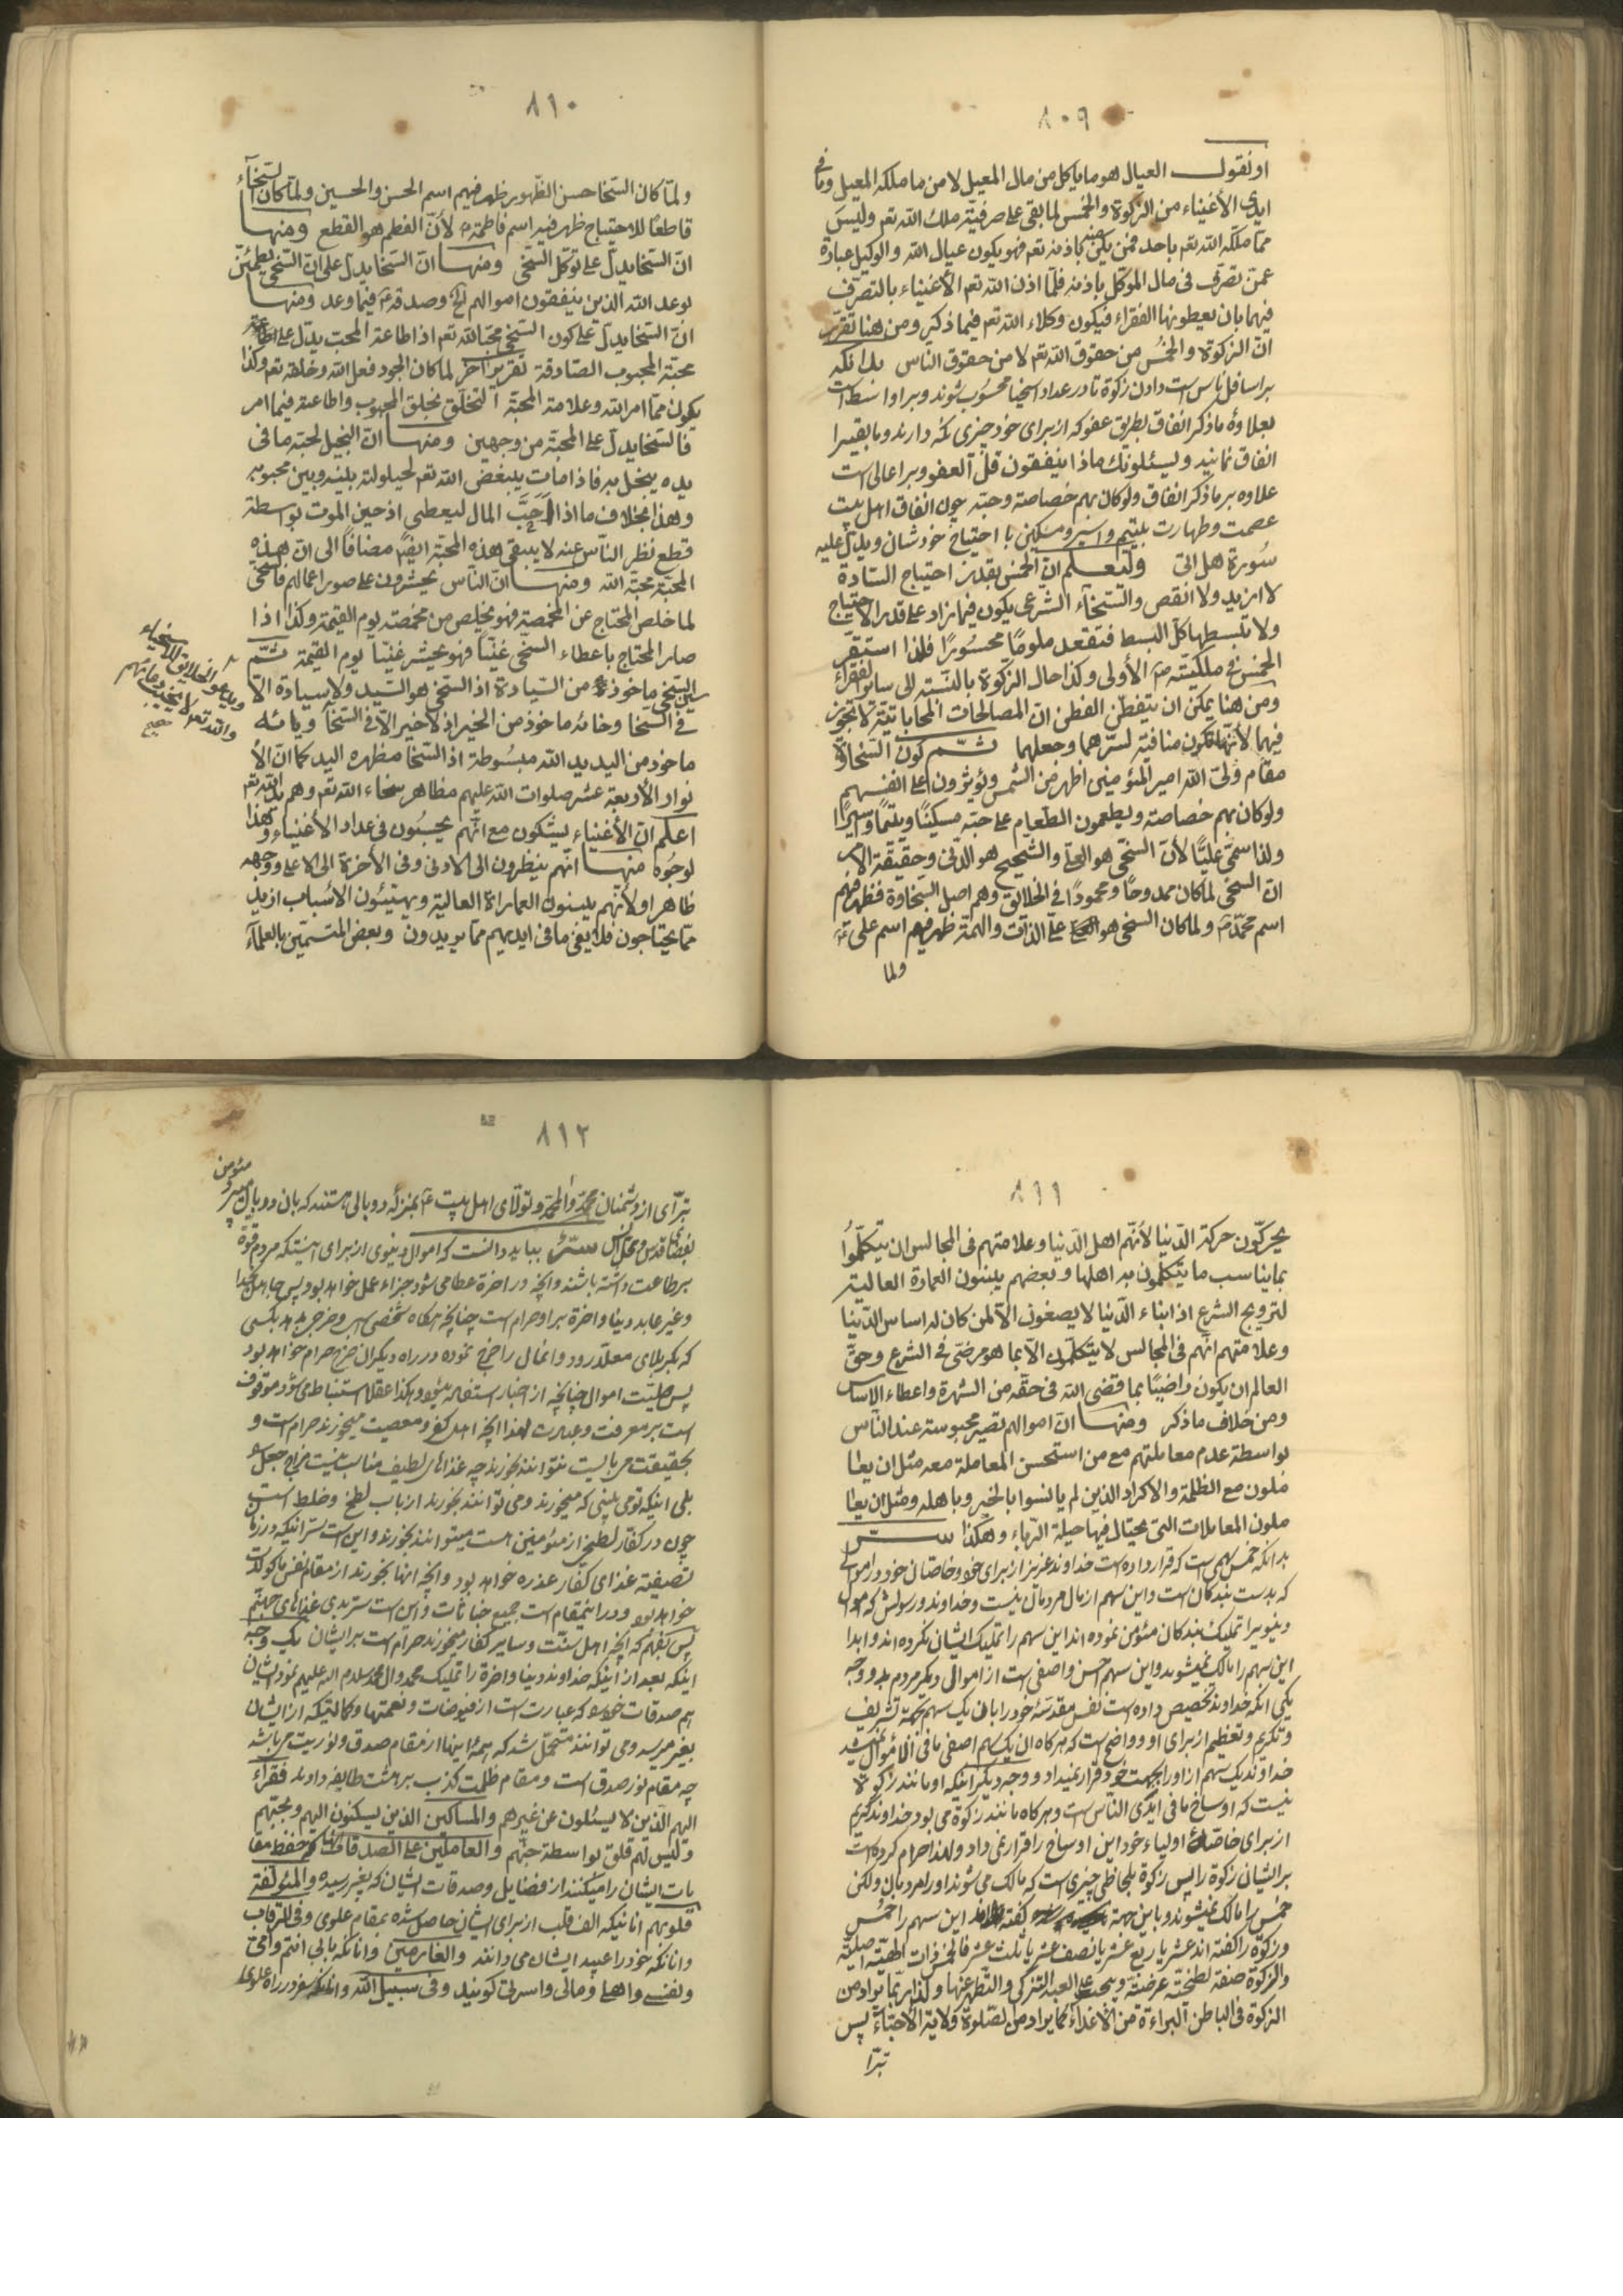 ٨٠٩
او نقول العيال هو ما ياكل من مال المعيل لا من ما ملكه المعيل وما فى
ايدى الأغنياء من الزكوة والخمس لما بقى على صرفيّة ملك الله تعم وليس
ممّا ملكه الله تعم باحد فمن يكن عنده باذنه تعم فهو يكون عيال الله والوكيل عبارة
عمن تصرف فى مال الموكل باذنه فلمّا اذن الله تعم الأغنياء بالتصرّف
فيهما بان يعطونها الفقراء فيكون وكلاء الله تعم فيما ذكر ومن هنا تقرّر
انّ الزكوة والخمس من حقوق الله تعم لا من حقوق الناس بدانكه
بر اسافل ناس است دادن زكوة تا در عداد اسخيا محسوب شوند وبر اواسط است
بعلاوهٔ ما ذكر انفاق بطريق عفو كه از براى خود چيزى نكه دارند وما بقى را
انفاق نمايند ويسئلونك ماذا ينفقون قل العفو وبر اعالى است
علاوه بر ما ذكر انفاق ولو كان بهم خصاصة وحبّه چون انفاق اهل بيت
عصمت وطهارت بيتيم واسير ومسكين با احتياج خودشان ويدلّ عليه
سورة هل اتى وليعلم انّ الخمس بقدر احتياج السّادة
لا ازيد ولا انقص والسّخآء الشرعى يكون فيما زاد على قدر الاحتياج
ولا تبسطها كلّ البسط فتقعد ملومًا محسورًا فلذا استقرّ
الخمس فى ملكيّته الأولى وكذا حال الزكوة بالنسبة الى ساير الفقراء
ومن هنا يمكن ان يتفطّن الفطن انّ المصالحات المحاباتيّة لا تجوز
فيهما لأنّها تكون منافية لسرّهما وجعلهما ثمّ كون السّخاوة
مقام ولىّ الله امير المؤمنين اظهر من الشمس ويؤثرون على انفسهم
ولو كان بهم خصاصة ويطعمون الطعام على حبّه مسكينًا ويتيمًا واسيرًا
ولذا سمّى عليًّا لأن السخّى هو العلىّ والشحيح هو الدّنى وحقيقة الأمر
انّ السخى لما كان ممدوحًا ومحمودًا فى الخلائق وهم اصل السخاوة فظهر فيهم
اسم محمّد ولما كان السخى هو علىّ الذّات والهمّة ظهر فيهم اسم على
ولما
٨١٠
ولمّا كان السّخا حسن الظّهور ظهر فيهم اسم الحسن والحسين ولمّا كان السّخآء
قاطعًا للاحتياج ظهر فيه اسم فاطمة لأنّ الفطم هو القطع ومنها
انّ السّخا يدلّ على توكّل السّخى ومنها انّ السّخا يدلّ على انّ السّخى يطمئنّ
بوعد الله الذين ينفقون اموالهم الخ وصدقه فيما وعد ومنها
انّ السّخا يدلّ على كون السّخى محبّا لله تعم اذ اطاعة المحب يدلّ على
محبّة المحبوب الصّادقة تقرير آخر لما كان الجود فعل الله وخلقه تعم وكذا
يكون ممّا امر الله وعلامة المحبّة التخلّق بخلق المحبوب واطاعته فيما امر
فالسّخا يدلّ على المحبّة من وجهين ومنها انّ البخيل لحبّه ما فى
يده يبخل به فاذا مات يبغض الله تعم لحيلولته بينه وبين محبوبه
وهذا بخلاف ما اذا احبّ المال ليعطى اذ حين الموت بواسطة
قطع نظر النّاس عنه لا يبقى هذه المحبّة ايضًا مضافًا الى انّ هذه
المحبّة محبّة الله ومنها انّ النّاس يحشرون على صور اعمالهم فالسّخى
لما خلص المحتاج عن المخمصة فهو يخلص من مخمصة يوم القيمة وكذا اذا
صار المحتاج باعطاء السخّى غنيًّا فهو يحشر غنيًّا يوم القيمة ثمّ
سين السّخى ماخوذ من السّيادة اذ السّخى هو السّيد ولا سيادة الّا
فى السّخا وخائه ماخوذ من الخير اذ لا خير الّا فى السّخا ويائه
ماخوذ من اليد يد الله مبسوطة اذ السّخا مظهره اليد كما انّ الأ
نوار الأربعة عشر صلوات الله عليهم مظاهر سخاء الله تعم وهم يد الله تعم
اعلم انّ الأغنياء يشكون مع انّهم يحسبون فى عداد الأغنياء وهذا
لوجوه منها انّهم ينظرون الى الادنى وفى الأخرة الى الاعلى ووجهه
ظاهر اولأنّهم يبنون العماراة العالية ويهيّئون الأسباب ازيد
ممّا يحتاجون فلا يفى ما فى ايديهم ممّا يريدون وبعض المتسمّين بالعلمآء
ويدعو الخلايق للأسخياء
والله تعم لا يخيب دعائهم
صحيح
٨١١
يحركّون حركة الدّنيا لأنّهم اهل الدّنيا وعلامتهم فى المجالس ان يتكلّموا
بما يناسب ما يتكلمون به اهلها وبعضهم يبنون العمارة العالية
لترويج الشرع اذ ابناء الدّنيا لا يصغون الّا لمن كان له اساس الدّنيا
وعلامتهم انّهم فى المجالس لا يتكلّمون الّا بما هو مرضىّ فى الشرع وحقّ
العالم ان يكون راضيًا بما قضى الله فى حقّه من الشهرة واعطاء الاساس
ومن خلاف ما ذكر ومنها انّ اموالهم تصير محبوسة عند النّاس
بواسطة عدم معاملتهم مع من استحسن المعاملة معه مثل ان يعا
ملون مع الظلمة والاكراد الذين لم يانسوا بالخير وباهله ومثل ان يعا
ملون المعاملات التى يحتال فيها حيلة الرّباء وهكذا سرّ
بدانكه خمس سهمى است كه قرار داده است خداوند عزيز از براى خود وخاصان خود در اموالى
كه بدست بندكان است واين سهم از مال مردمان نيست وخداوند ورسولش كه اموال
دنيويرا تمليك بندكان مؤمن نموده اند اين سهم را تمليك ايشان نكرده اند وابدا
اين سهم را مالك نميشوند واين سهم احسن واصفى است از اموالى ديكر مردم بدو وجه
يكى انكه خداوند تخصيص داده است نفس مقدسهٔ خود را بان يك سهم بجهة تشريف
وتكريم وتعظيم از براى او وواضح است كه هركاه ان يك سهم اصفى ما فى الأموال نميشد
خداوند يك سهم از او را بجهت خود قرار نميداد ووجه ديكر اينكه او مانند زكوة
نيست كه اوساخ ما فى ايدى النّاس است وهركاه مانند زكوة مى بود خداوند كريم
از براى خاصّان اولياء خود اين اوساخ را قرار نمى داد ولهذا حرام كرده است
بر ايشان زكوة را پس زكوة بلحاظى چيزى است كه مالك مى شوند اورا مردمان ولكن
خمس را مالك نميشوند وباين جهة كفته اند اين سهم را خمس
وزكوة را كفته اند عشر يا ربع عشر يا نصف عشر يا ثلث عشر فالخمس ذات الهيّة اصليّة
والزكوة صفة لطخيّة عرضيّة ويجب على العبد التزكى والتّطهر عنها ولذا ربّما يراد من
الزكوة فى الباطن البراءة من الأعداء كما يراد من الصّلوة ولاية الأحبّاء پس
تبرّا
٨١٢
تبرّاى از دشمنان محمّد وال محمد وتولّاى اهل بيت بمنزلهٔ دو بالى هستند كه بان دو بال ميپرد مؤمن
بفضاى قدس ومحل انس سرّ ببايد دانست كه اموال دنيوى از براى اينستكه مردم قوّة
بر طاعت داشته باشند وانچه در اخرة عطا مى شود جزاء عمل خواهد بود پس جاهل بخدا
وغير عابد دنيا واخرة بر او حرام است چنانچه هركاه شخصى اسب وخرجى بدهد بكسى
كه بكربلاى معلّا رود وانمال را خرج نموده در راه ديكر ان خرج حرام خواهد بود
پس حليّت اموال چنانچه از اخبار استفاده ميشود وهكذا عقلا استنباط مى شود موقوف
است بر معرفت وعبادت لهذا انچه اهل كفر ومعصيت ميخورند حرام است و
بحقيقت حربا ليست نتوانند بخورند چه غذاهاى لطيف مناسب نيست مزاج جعل را
بلى اينكه تو مى بينى كه ميخورند ومى توانند بخورند از باب لطخ وخلط است
چون در كفار لطخى از مؤمنين هست ميتوانند بخورند واين است سرّ انيكه در زمان
تصفيه غذاى كفّار عذره خواهد بود وانچه انها بخورند از مقام نفس ماكولات
خواهد بود ودر اينمقام است جميع خباثات واين است سرّ بدى غذاهاى جهنّم
پس بفهم كه انچه اهل سنّت وساير كفار ميخورند حرام است بر ايشان يك وجه
اينكه بعد از اينكه خداوند دنيا واخرة را تمليك محمد وال محمد سلام الله عليهم نمود ايشان
هم صدقات خود كه عبارت است از فيوضات ونعمتها وكمالاتيكه از ايشان
بغير ميرسد ومى توانند متحمّل شد كه همهٔ اينها از مقام صدق ونوريت مى باشد
چه مقام نور صدق است ومقام ظلمت كذب بر هشت طايفه دادند فقراء
اليهم الّذين لا يسئلون عن غيرهم والمساكين الذين يسكنون اليهم وبحبّهم
وليس لهم قلق بواسطة حبّهم والعاملين على الصدقات كه حفظ مقا
مات ايشان را ميكنند از فضايل وصدقات ايشان كه بغير رسيده والمؤلّفة
قلوبهم انانيكه الف قلب از براى ايشان حاصل شده بمقام علوى وفى الرّقاب
وانانكه خود را عبيد ايشان مى دانند والغارمين وانانكه بابى انتم وامّى
ونفسى واهلى ومالى واسرتى كويند وفى سبيل الله وانانكه سفر در راه علوى